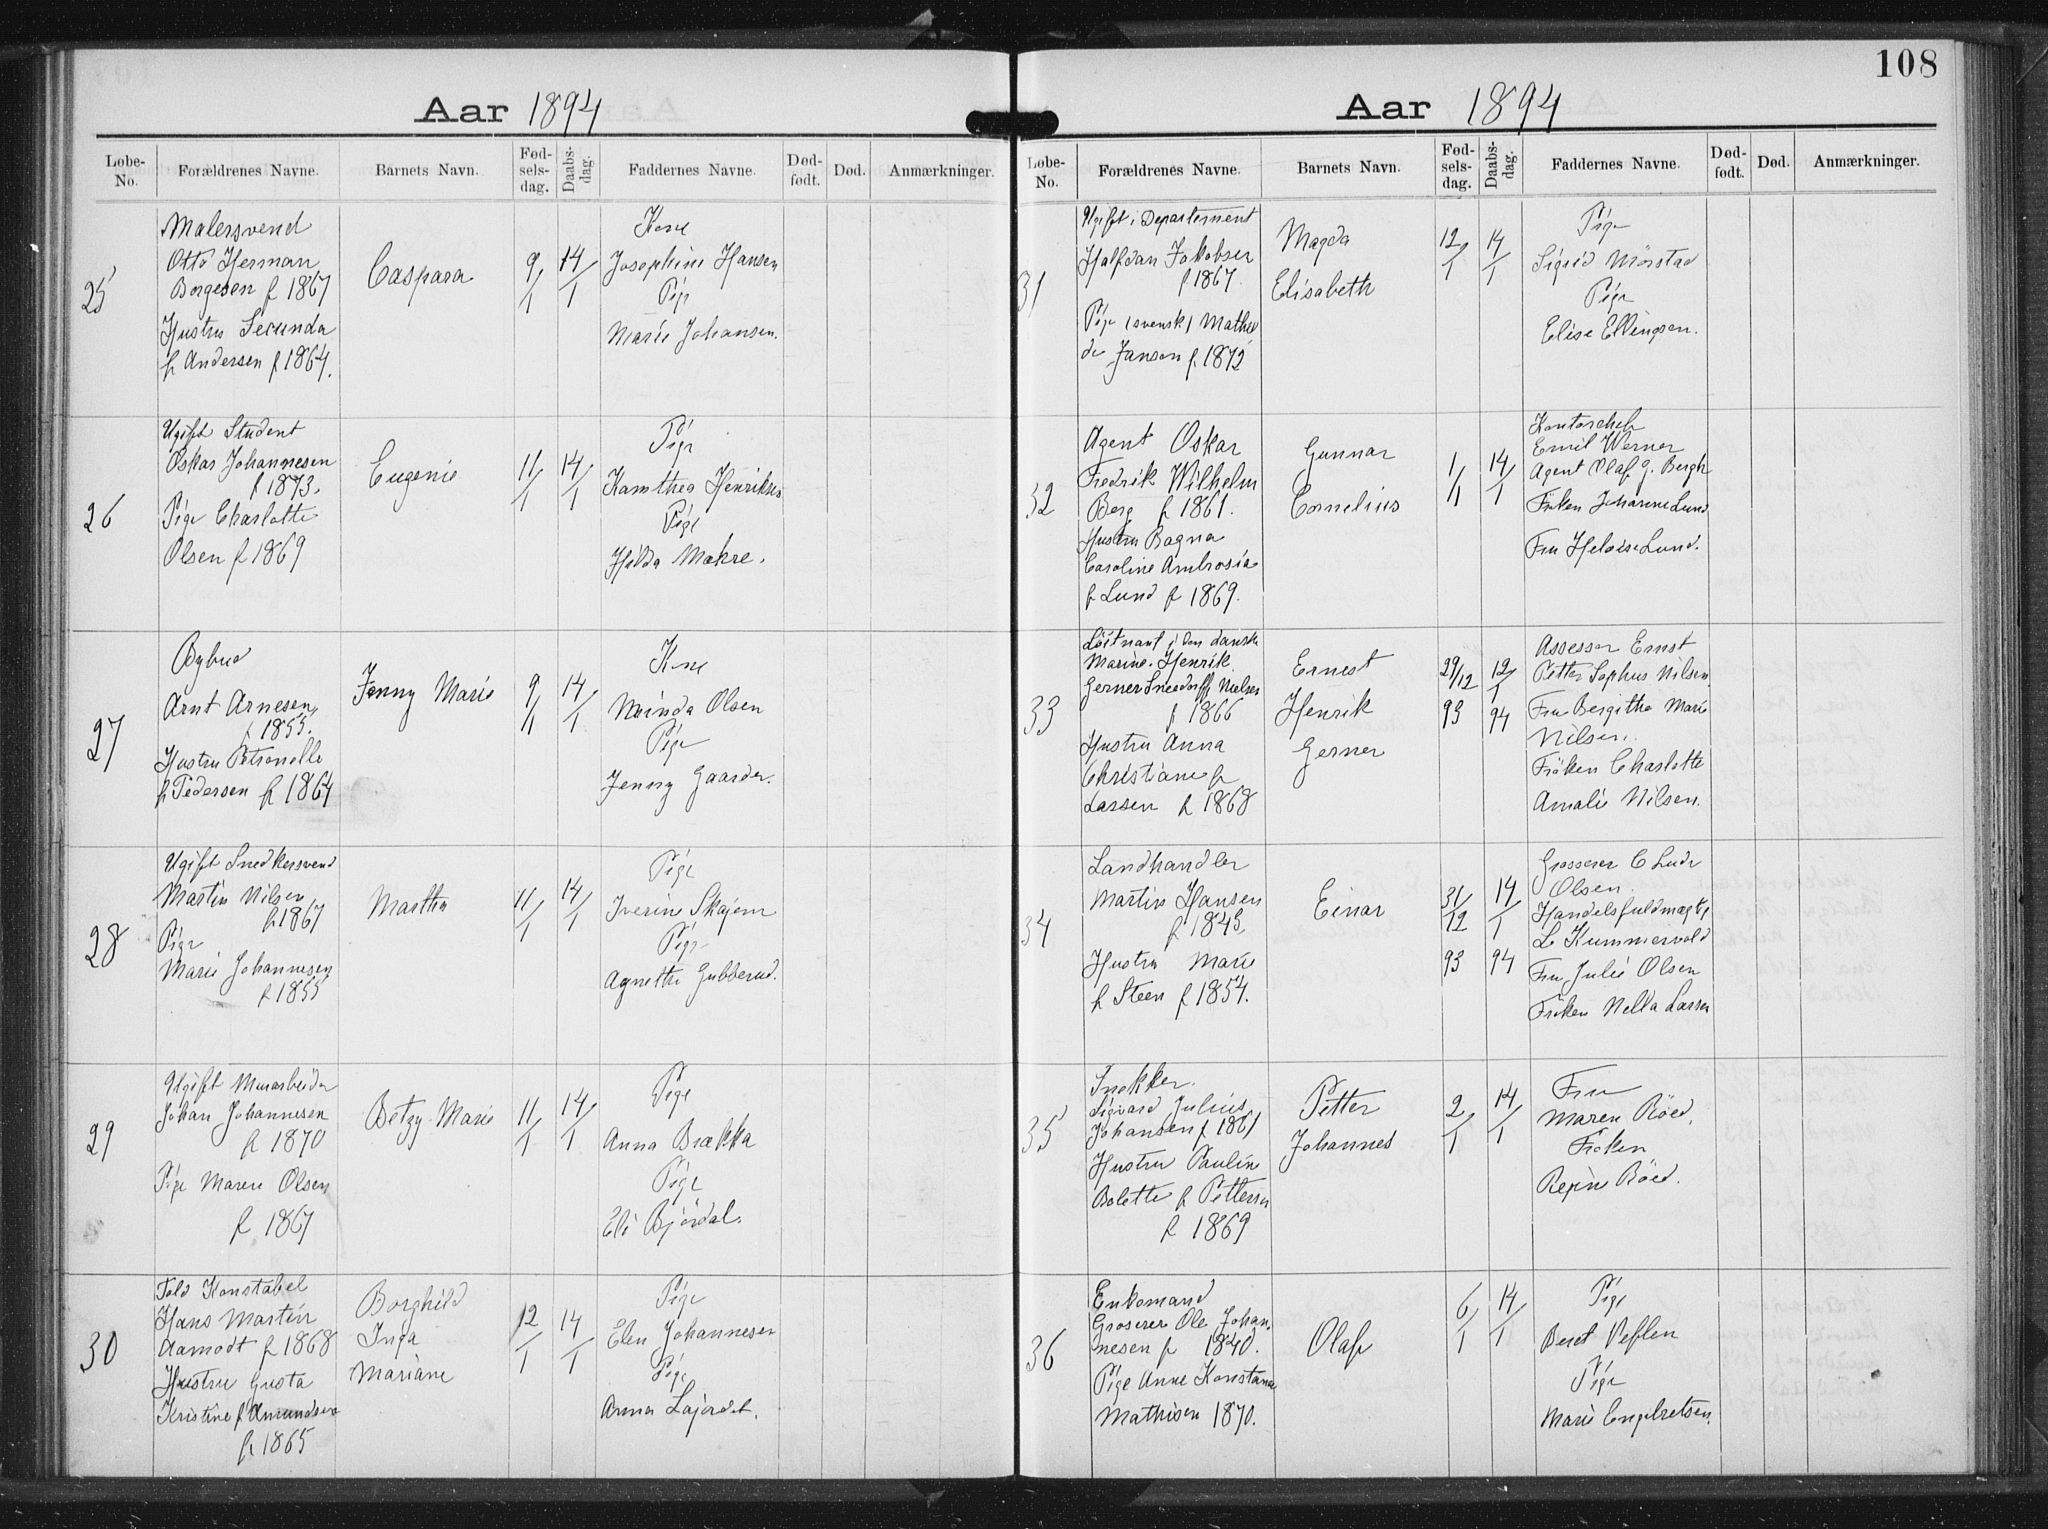 108
Aar 1894
Løbe-No. Forældrenes Navne. Barnets Navn. Fødselsdag. Daabsdag. Faddernes Navne. Dødfødt. Død. Anmærkninger.
25
Malersvend
Otto Herman
Borgesen f 1867
Hustru Secunda
f Andersen f 1864.
Caspara
9/1
14/1
Kone
Josephine Hansen
Pige
Marie Johansen.
26
Ugift Student
Oskar Johannesen
f 1873.
Pige Charlotte
Olsen f 1869
Eugenie
11/1
14/1
Pige
Kamthea Henriksen
Pige
Hilda Makre.
27
Bybud
Arnt Arnesen
f 1855.
Hustru Petronelle
f Pedersen f 1864
Jenny Marie
9/1
14/1
Kone
Minda Olsen
Pige
Jenny Gaarder.
28
Ugift Snedkersvend
Martin Nilsen
f 1867
Pige
Marie Johannesen
f 1855
Martha
11/1
14/1
Pige
Iverine Skajem
Pige
Agnethe Gubberud.
29
Ugift Murarbeider
Johan Johannesen
f 1870
Pige Maren Olsen
f 1867
Betzy Marie
11/1
14/1
Pige
Anna Brækka
Pige
Eli Bjørdal.
30
Told Konstabel
Hans Martin
Aamodt f 1868
Hustru Gusta
Kristine f Amundsen
f 1865
Borghild
Inga
Mariane
12/1
14/1
Pige
Elen Johannesen
Pige
Anna Løjordet.
Aar 1894
Løbe-No. Forældrenes Navne. Barnets Navn. Fødselsdag. Daabsdag. Faddernes Navne. Dødfødt. Død. Anmærkninger.
31
Ugift i Departement
Halfdan Jakobsen
f 1867.
Pige (svensk) Mathil
de Janson f 1872
Magda
Elisabeth
12/1
14/1
Pige
Sigrid Mørstad
Pige
Elise Ellingsen.
32
Agent Oskar
Fredrik Wilhelm
Berg f 1861.
Hustru Ragna
Caroline Ambrosia
f Lund f 1869.
Gunnar
Cornelius
1/1
14/1
Kontorchef
Emil Werner
Agent Olaf G. Bergh
Frøken Johanne Lund
Fru Heloise Lund.
33
Løitnant i den danske
Marine. Henrik
Gerner Sneedorff Nielsen
f 1866
Hustru Anna
Christiane f
Larsen f 1868
Ernest
Henrik
Gerner
29/12
93
12/1
94
Assessor Ernst
Petter Sophus Nilsen
Fru Bergitha Marie
Nilsen.
Frøken Charlotte
Amalie Nilsen.
34
Landhandler
Martin Hansen
f 1845
Hustru Marie
f Steen f 1854.
Einar
31/12
93
14/1
94
Grosserer C Ludv
Olsen.
Handelsfuldmægtig
L Kummervold
Fru Julie Olsen
Frøken Nella Larsen
35
Snekker
Sigvard Julius
Johansen f 1861
Hustru Pauline
Bolette f Pettersen
f 1869
Petter
Johannes
2/1
14/1
Fru
Maren Røed.
Frøken
Regine Røed.
36
Enkemand
Groserer Ole Johan-
nesen f 1840.
Pige Anne Konstance
Mathisen 1870.
Olaf
6/1
14/1
Pige
Beret Veflen
Pige
Marie Engebretsen.